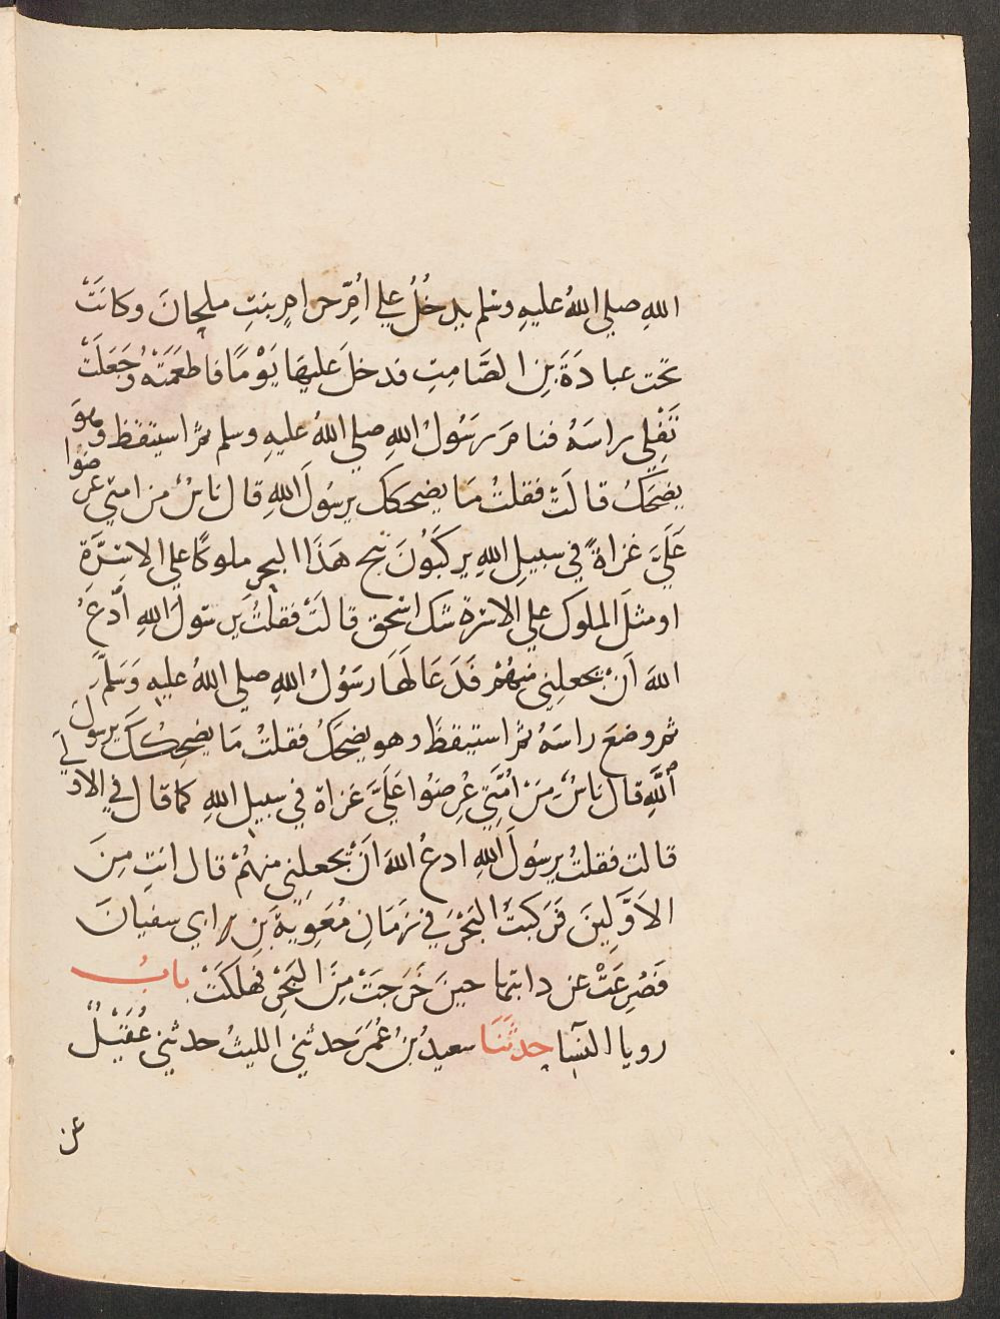 اللهِ صلى اللهُ عليهِ وسلم يدخُلُ علي اُمِّ حرامٍ بنتِ ملحانَ وكانَتْ
تحت عبادَةَ بنِ الصَّامِتِ فدخلَ عليهَا يَوْمًا فاطعَمَتْهُ وَجَعَلَتْ
تَفْلِي راسَهُ فنامَ رَسُولُ اللهِ صلي اللهُ عليهِ وسلم ثمَّ استيقظ وهوَ
يضحَكُ قالَتْ فقلتُ مَا يضحكك يرسُولَ اللهِ قال ناسٌ من امتي عرضوا
عَلَيَّ غزاةً في سبيلِ اللهِ يركَبُونَ ثبج هَذَا البحرِ ملوكًا علي الاسِرَّة
او مثلَ الملوك علي الاسرة شك اسحق قالَتْ فقلتُ يرسولَ اللهِ ادْعُ
اللهَ اَنْ يجعلنِي منهُمْ فَدَعَا لَهَا رسُولُ اللهِ صلي اللهُ عليهِ وَسَلَّمَ
ثم وضعَ راسَهُ ثمَّ استيقظَ وهو يضحَكُ فقلتُ مَا يضحِكُكَ يرسولَ
اللهِ قال ناسٌ مِنْ اُمَّتِي عُرِضَوُا عَلَيَّ غزاة في سبيلِ اللهِ كما قال في الاولَي
قالت فقلتُ يرسُولَ اللهِ ادعُ اللهَ اَنْ يجعلِني منهُمْ قال انتِ مِنَ
الاَوَّلِينَ فَرَكبَتْ البَحْرَ في زَمَانِ مُعَوِيةَ بَنِ ابي سفيانَ
فَصُرِعَتْ عن دابتها حينَ خَرَجَتْ مِنَ البَحْرِ فهلكَتْ بابُ
رويا النسا حدثَنَا سعيدُ بنُ عُفَيرَ حدثني الليثُ حدثني عُقَيْلٌ
عن